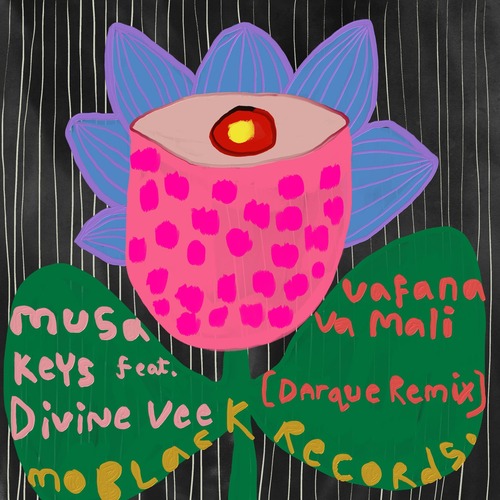 musa
Keys feat.
Divine Vee
vafana
va Mali
[Darque Remix]
moBLacK RecoRds.